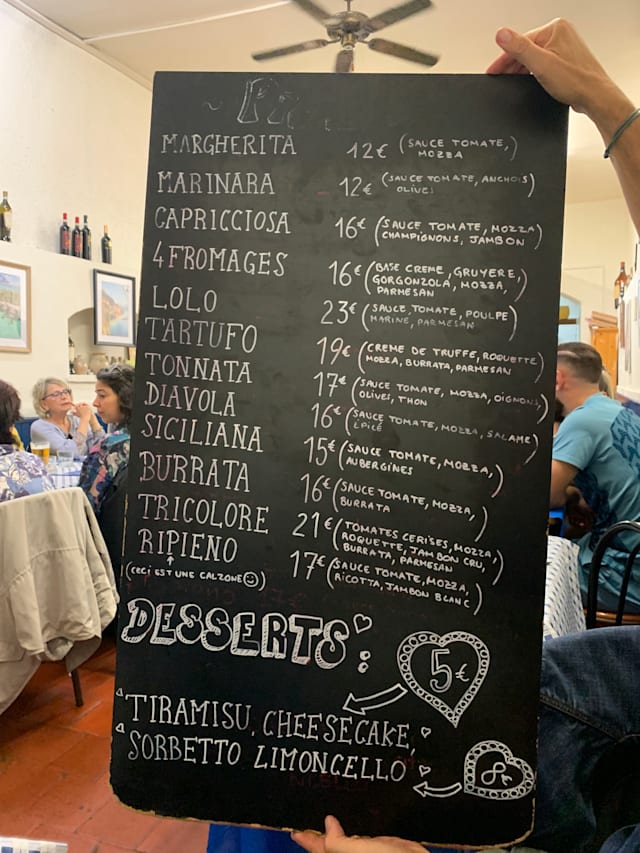 MARGHERITA 12€ (SAUCE TOMATE,
MOZZA)
MARINARA 12€ (SAUCE TOMATE, ANCHOIS
OLIVES)
CAPRICCIOSA 16€ (SAUCE TOMATE, MOZZA
CHAMPIGNONS, JAMBON)
4 FROMAGES 16€ (BASE CREME, GRUYERE,
GORGONZOLA, MOZZA,
PARMESAN)
LOLO 23€ (SAUCE TOMATE, POULPE
MARINE, PARMESAN)
TARTUFO 19€ (CREME DE TRUFFE, ROQUETTE
MOZZA, BURRATA, PARMESAN)
TONNATA 17€ (SAUCE TOMATE, MOZZA, OIGNONS,
OLIVES, THON)
DIAVOLA 16€ (SAUCE TOMATE, MOZZA, SALAME
EPICÉ)
SICILIANA 15€ (SAUCE TOMATE, MOZZA,
AUBERGINES)
BURRATA 16€ (SAUCE TOMATE, MOZZA,
BURRATA)
TRICOLORE 21€ (TOMATES CERISES, MOZZA,
ROQUETTE, JAMBON CRU,
BURRATA, PARMESAN)
RIPIENO 17€ (SAUCE TOMATE, MOZZA,
RICOTTA, JAMBON BLANC)
(CECI EST UNE CALZONE☺)
DESSERTS:
5€
TIRAMISU, CHEESECAKE,
SORBETTO LIMONCELLO